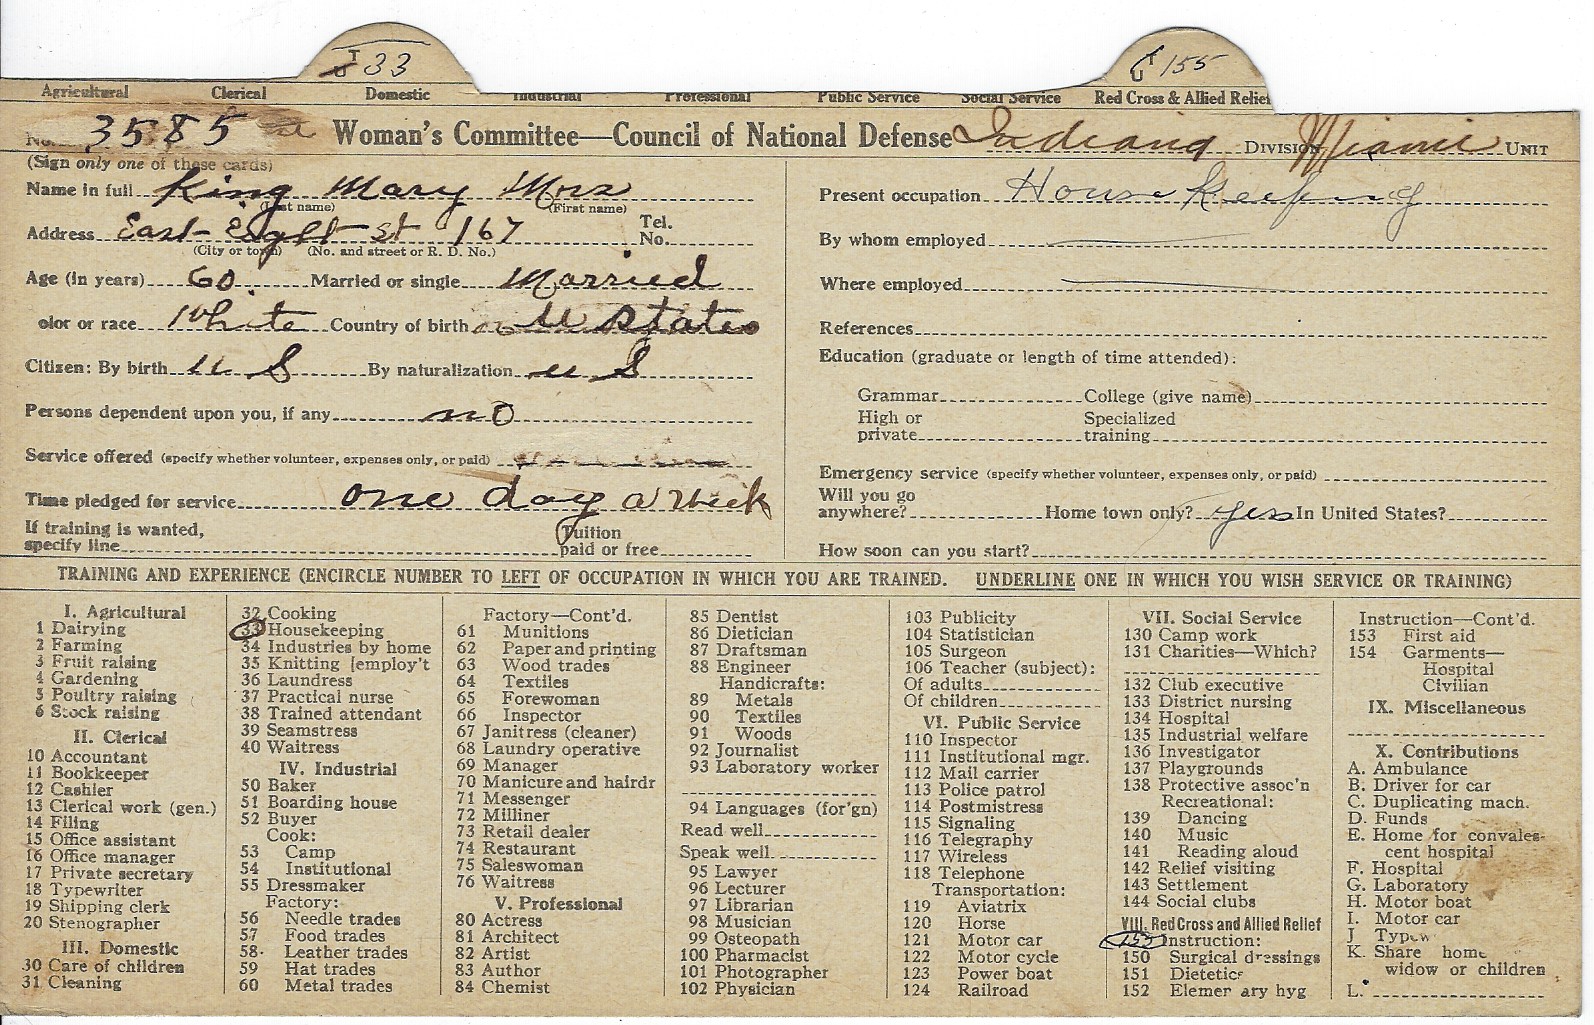 T 33
T 155
Agricultural Clerical Domestic Industrial Professional Public Service Social Service Red Cross & Allied Relief
No. 3585 Woman's Committee—Council of National Defense Indiana DIVISION Miami UNIT
(Sign only one of these cards)
Name in full King Mary Mrs
(Last name) (First name)
Address East Eight st 167 Tel. No.
(City or town) (No. and street or R. D. No.)
Age (in years) 60 Married or single Married
olor or race White Country of birth U States
Citizen: By birth U S By naturalization U S
Persons dependent upon you, if any no
Service offered (specify whether volunteer, expenses only, or paid)
Time pledged for service one day a week
If training is wanted, specify line Tuition paid or free
Present occupation House Keeping
By whom employed
Where employed
References
Education (graduate or length of time attended):
Grammar College (give name)
High or private Specialized training
Emergency service (specify whether volunteer, expenses only, or paid)
Will you go anywhere? Home town only? yes In United States?
How soon can you start?
TRAINING AND EXPERIENCE (ENCIRCLE NUMBER TO LEFT OF OCCUPATION IN WHICH YOU ARE TRAINED. UNDERLINE ONE IN WHICH YOU WISH SERVICE OR TRAINING)
I. Agricultural
1 Dairying
2 Farming
3 Fruit raising
4 Gardening
5 Poultry raising
6 Stock raising
II. Clerical
10 Accountant
11 Bookkeeper
12 Cashier
13 Clerical work (gen.)
14 Filing
15 Office assistant
16 Office manager
17 Private secretary
18 Typewriter
19 Shipping clerk
20 Stenographer
III. Domestic
30 Care of children
31 Cleaning
32 Cooking
33 Housekeeping
34 Industries by home
35 Knitting [employ't
36 Laundress
37 Practical nurse
38 Trained attendant
39 Seamstress
40 Waitress
IV. Industrial
50 Baker
51 Boarding house
52 Buyer
Cook:
53 Camp
54 Institutional
55 Dressmaker
Factory:
56 Needle trades
57 Food trades
58 Leather trades
59 Hat trades
60 Metal trades
Factory—Cont'd.
61 Munitions
62 Paper and printing
63 Wood trades
64 Textiles
65 Forewoman
66 Inspector
67 Janitress (cleaner)
68 Laundry operative
69 Manager
70 Manicure and hairdr
71 Messenger
72 Milliner
73 Retail dealer
74 Restaurant
75 Saleswoman
76 Waitress
V. Professional
80 Actress
81 Architect
82 Artist
83 Author
84 Chemist
85 Dentist
86 Dietician
87 Draftsman
88 Engineer
Handicrafts:
89 Metals
90 Textiles
91 Woods
92 Journalist
93 Laboratory worker
94 Languages (for'gn)
Read well
Speak well
95 Lawyer
96 Lecturer
97 Librarian
98 Musician
99 Osteopath
100 Pharmacist
101 Photographer
102 Physician
103 Publicity
104 Statistician
105 Surgeon
106 Teacher (subject):
Of adults
Of children
VI. Public Service
110 Inspector
111 Institutional mgr.
112 Mail carrier
113 Police patrol
114 Postmistress
115 Signaling
116 Telegraphy
117 Wireless
118 Telephone
Transportation:
119 Aviatrix
120 Horse
121 Motor car
122 Motor cycle
123 Power boat
124 Railroad
VII. Social Service
130 Camp work
131 Charities—Which?
132 Club executive
133 District nursing
134 Hospital
135 Industrial welfare
136 Investigator
137 Playgrounds
138 Protective assoc'n
Recreational:
139 Dancing
140 Music
141 Reading aloud
142 Relief visiting
143 Settlement
144 Social clubs
VIII. Red Cross and Allied Relief
Instruction:
150 Surgical dressings
151 Dietetics
152 Elementary hyg
Instruction—Cont'd.
153 First aid
154 Garments—
Hospital
Civilian
IX. Miscellaneous
X. Contributions
A. Ambulance
B. Driver for car
C. Duplicating mach.
D. Funds
E. Home for convales-
cent hospital
F. Hospital
G. Laboratory
H. Motor boat
I. Motor car
J Typew
K. Share home
widow or children
L.